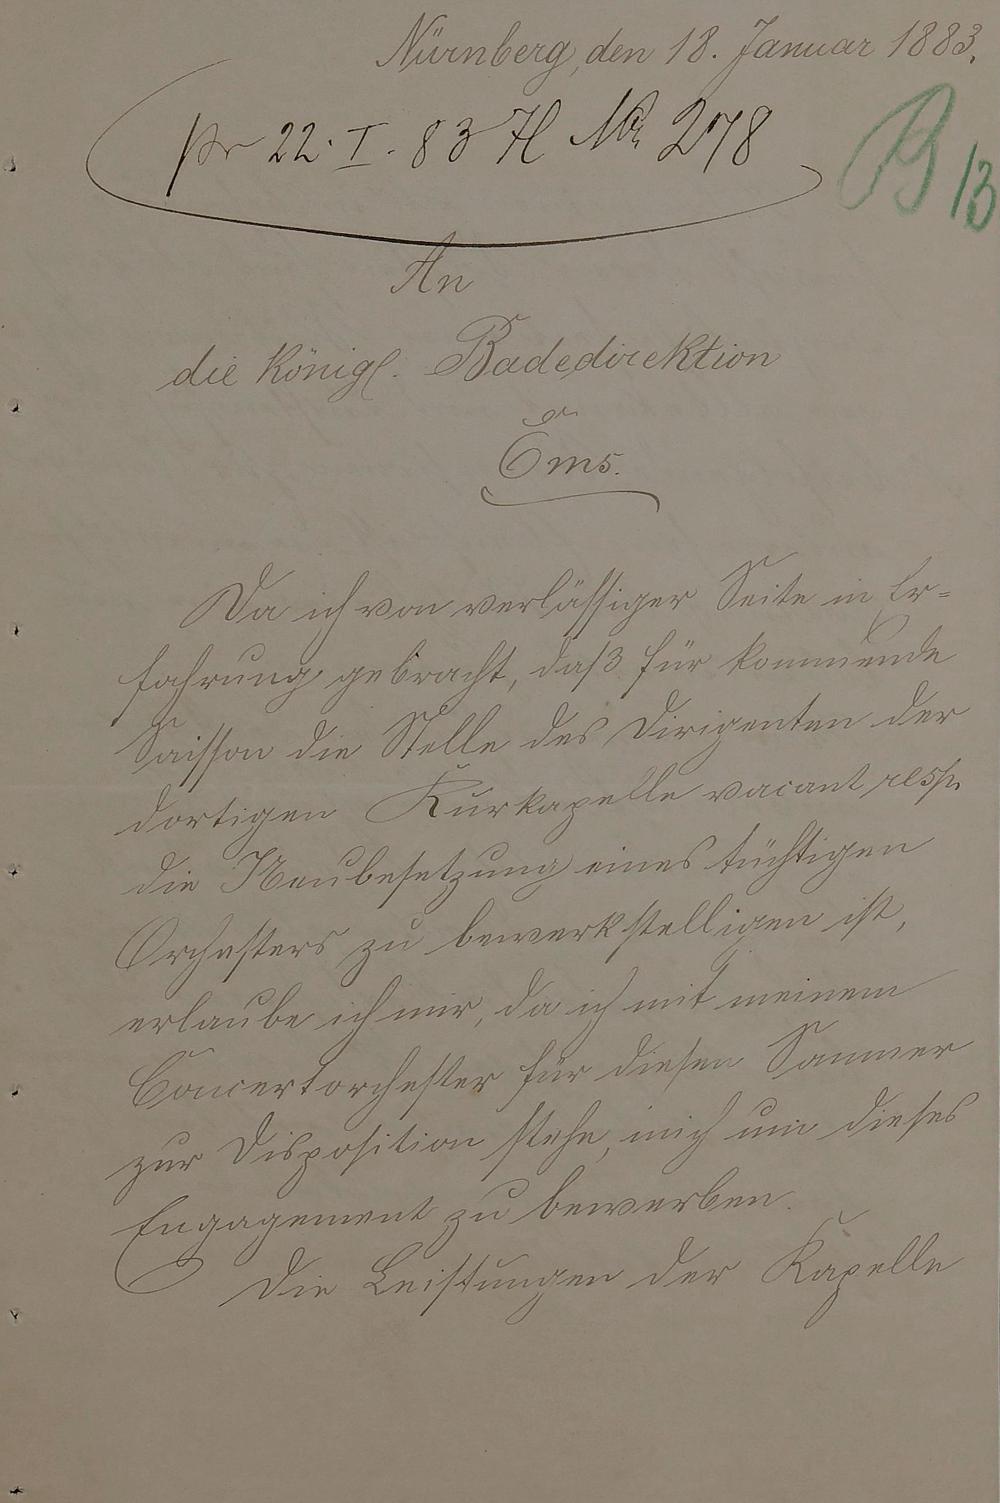 Nürnberg, den 18. Januar 1883.
pr 22. I. 83 H No. 278
B 13
An
die Königl. Badedirektion
Ems.
Da ich von verlässiger Seite in Er=
fahrung gebracht, daß für kommende
Saisson die Stelle des Dirigenten der
dortigen Kurkapelle vacant resp.
die Neubesetzung eines tüchtigen
Orchesters zu bewerkstelligen ist,
erlaube ich mir, da ich mit meinem
Concertorchester für diesen Sommer
zur Disposition stehe, mich um dieses
Engagement zu bewerben.
Die Leistungen der Kapelle